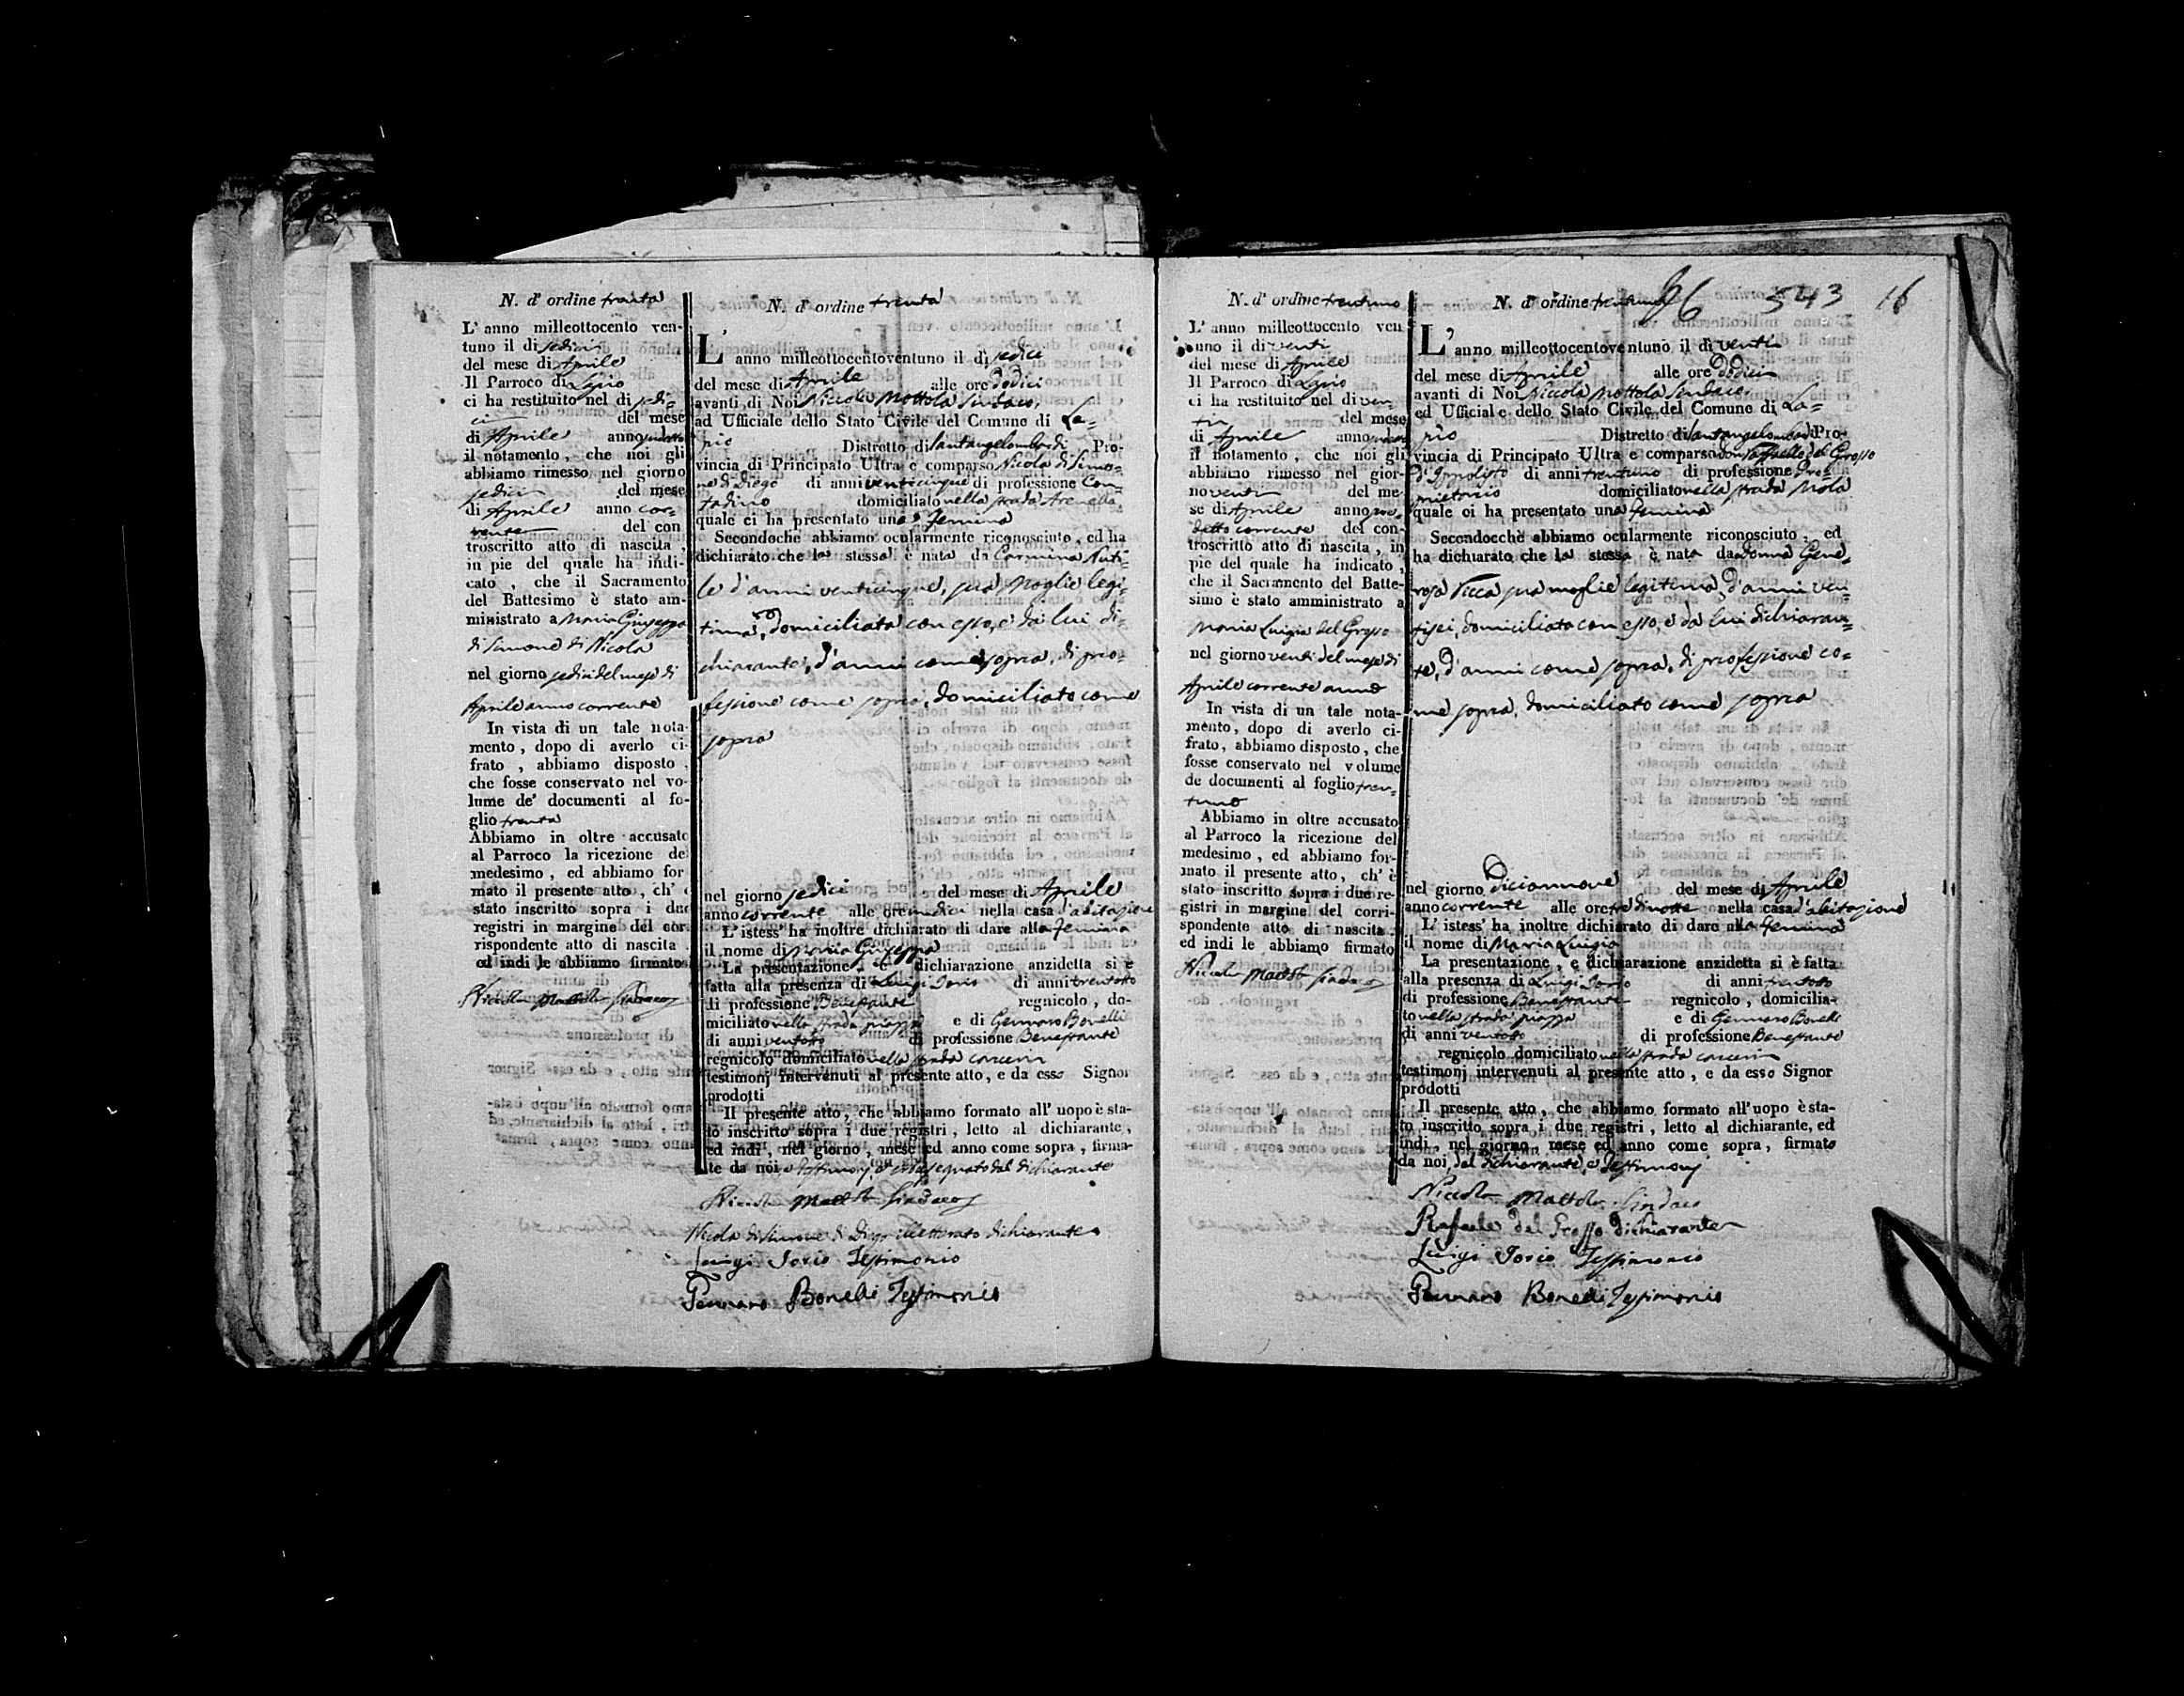 N. d' ordine trenta
L' anno milleottocento ven-
tuno il di sedici
del mese di Aprile
Il Parroco di Lapio
ci ha restituito nel di sedi-
ci del mese
di Aprile anno
il notamento, che noi gli
abbiamo rimesso nel giorno
sedici del mese
di Aprile anno cor-
rente del con
troscritto atto di nascita,
in pie del quale ha indi-
cato, che il Sacramento
del Battesimo è stato am-
ministrato a Maria Giuseppa
di Simone di Nicola
nel giorno sedici del mese di
Aprile anno corrente
In vista di un tale nota-
mento, dopo di averlo ci-
frato, abbiamo disposto,
che fosse conservato nel vo-
lume de' documenti al fo-
glio trenta
Abbiamo in oltre accusato
al Parroco la ricezione del
medesimo, ed abbiamo for
mato il presente atto, ch' è
stato inscritto sopra i due
registri in margine del cor
rispondente atto di nascita
ed indi le abbiamo firmato
Nicola Mottola Sindaco
N. d' ordine trenta
L' anno milleottocentoventuno il di sedici
del mese di Aprile alle ore dodici
avanti di Noi Niccola Mottola Sindaco,
ed Uffiziale dello Stato Civile del Comune di La-
pio Distretto di Santangelombardi Pro-
vincia di Principato Ultra e comparso Nicola di Simo-
ne di Diego di anni venticinque di professione Con-
tadino domiciliato nella strada Arenella
quale ci ha presentato una Femina
Secondoche abbiamo ocularmente riconosciuto, ed ha
dichiarato che la stessa è nata da Carmina Nuti-
le d'anni venticinque, sua moglie legi-
tima, domiciliata con esso, e da lui di-
chiarante, d'anni come sopra, di pro-
fessione come sopra, domiciliato come
sopra
nel giorno sedici del mese di Aprile
anno corrente alle ore undici nella casa d'abitazione
L'istess' ha inoltre dichiarato di dare alla Femina
il nome di Maria Giuseppa
La presentazione, e dichiarazione anzidetta si è
fatta alla presenza di Luigi Iorio di anni trentotto
di professione Benestante regnicolo, do-
miciliato nella strada piazza e di Gennaro Bonelli
di anni ventotto di professione Benestante
regnicolo domiciliato nella strada carceri
testimonj intervenuti al presente atto, e da esso Signor
prodotti
Il presente atto, che abbiamo formato all' uopo è sta-
to inscritto sopra i due registri, letto al dichiarante,
ed indi, nel giorno, mese ed anno come sopra, firma-
te da noi e testimonj, e crocesegnato dal dichiarante
Nicola Mottola Sindaco
Nicola di Simone di Diego illetterato dichiarante
Luigi Iorio Testimonio
Gennaro Bonelli Testimonio
N. d' ordine trentuno
L' anno milleottocento ven
tuno il di venti
del mese di Aprile
Il Parroco di Lapio
ci ha restituito nel di ven-
ti del mese
di Aprile anno
il notamento, che noi gli
abbiamo rimesso nel gior-
no venti del me-
se di Aprile anno
detto corrente del con-
troscritto atto di nascita, in
pie del quale ha indicato,
che il Sacramento del Batte-
simo è stato amministrato a
Maria Luigia del Grosso
nel giorno venti del mese di
Aprile corrente anno
In vista di un tale nota-
mento, dopo di averlo ci-
frato, abbiamo disposto, che
fosse conservato nel volume
de documenti al foglio tren-
tuno
Abbiamo in oltre accusato
al Parroco la ricezione del
medesimo, ed abbiamo for-
mato il presente atto, ch' è
stato inscritto sopra i due re-
gistri in margine del corri-
spondente atto di nascita.
ed indi le abbiamo firmato
Nicola Mottola Sindaco
N. d' ordine trentuno 86 543 16
L' anno milleottocentoventuno il di venti
del mese di Aprile alle ore dodici
avanti di Noi Niccola Mottola Sindaco,
ed Ufficiale dello Stato Civile del Comune di La-
pio Distretto di Santangelombardi Pro-
vincia di Principato Ultra e comparso Don Raffaele del Grosso
d'Ippolisto di anni trentuno di professione Pro-
prietario domiciliato nella strada Mola
quale ci ha presentato una Femina
Secondocchè abbiamo ocularmente riconosciuto, ed
ha dichiarato che la stessa è nata da Donna Gene-
rosa Vicca sua moglie legitima, d'anni ven-
tisei, domiciliata con esso, e da lui dichiaran-
te, d'anni come sopra, di professione co-
me sopra, domiciliato come sopra
nel giorno Diciannove del mese di Aprile
anno corrente alle ore tre di notte nella casa d'abitazione
L'istess' ha inoltre dichiarato di dare alla Femina
il nome di Maria Luigia
La presentazione, e dichiarazione anzidetta si è fatta
alla presenza di Luigi Iorio di anni trentotto
di professione Benestante regnicolo, domicilia-
to nella strada piazza e di Gennaro Bonelli
di anni ventotto di professione Benestante
regnicolo domiciliato nella strada carceri
testimonj intervenuti al presente atto, e da esso Signor
prodotti
Il presente atto, che abbiamo formato all' uopo è sta-
to inscritto sopra i due registri, letto al dichiarante, ed
indi, nel giorno, mese ed anno come sopra, firmato
da noi, dal dichiarante, e testimonj
Nicola Mottola Sindaco
Rafaele del Grosso dichiarante
Luigi Iorio Testimonio
Gennaro Bonelli Testimonio